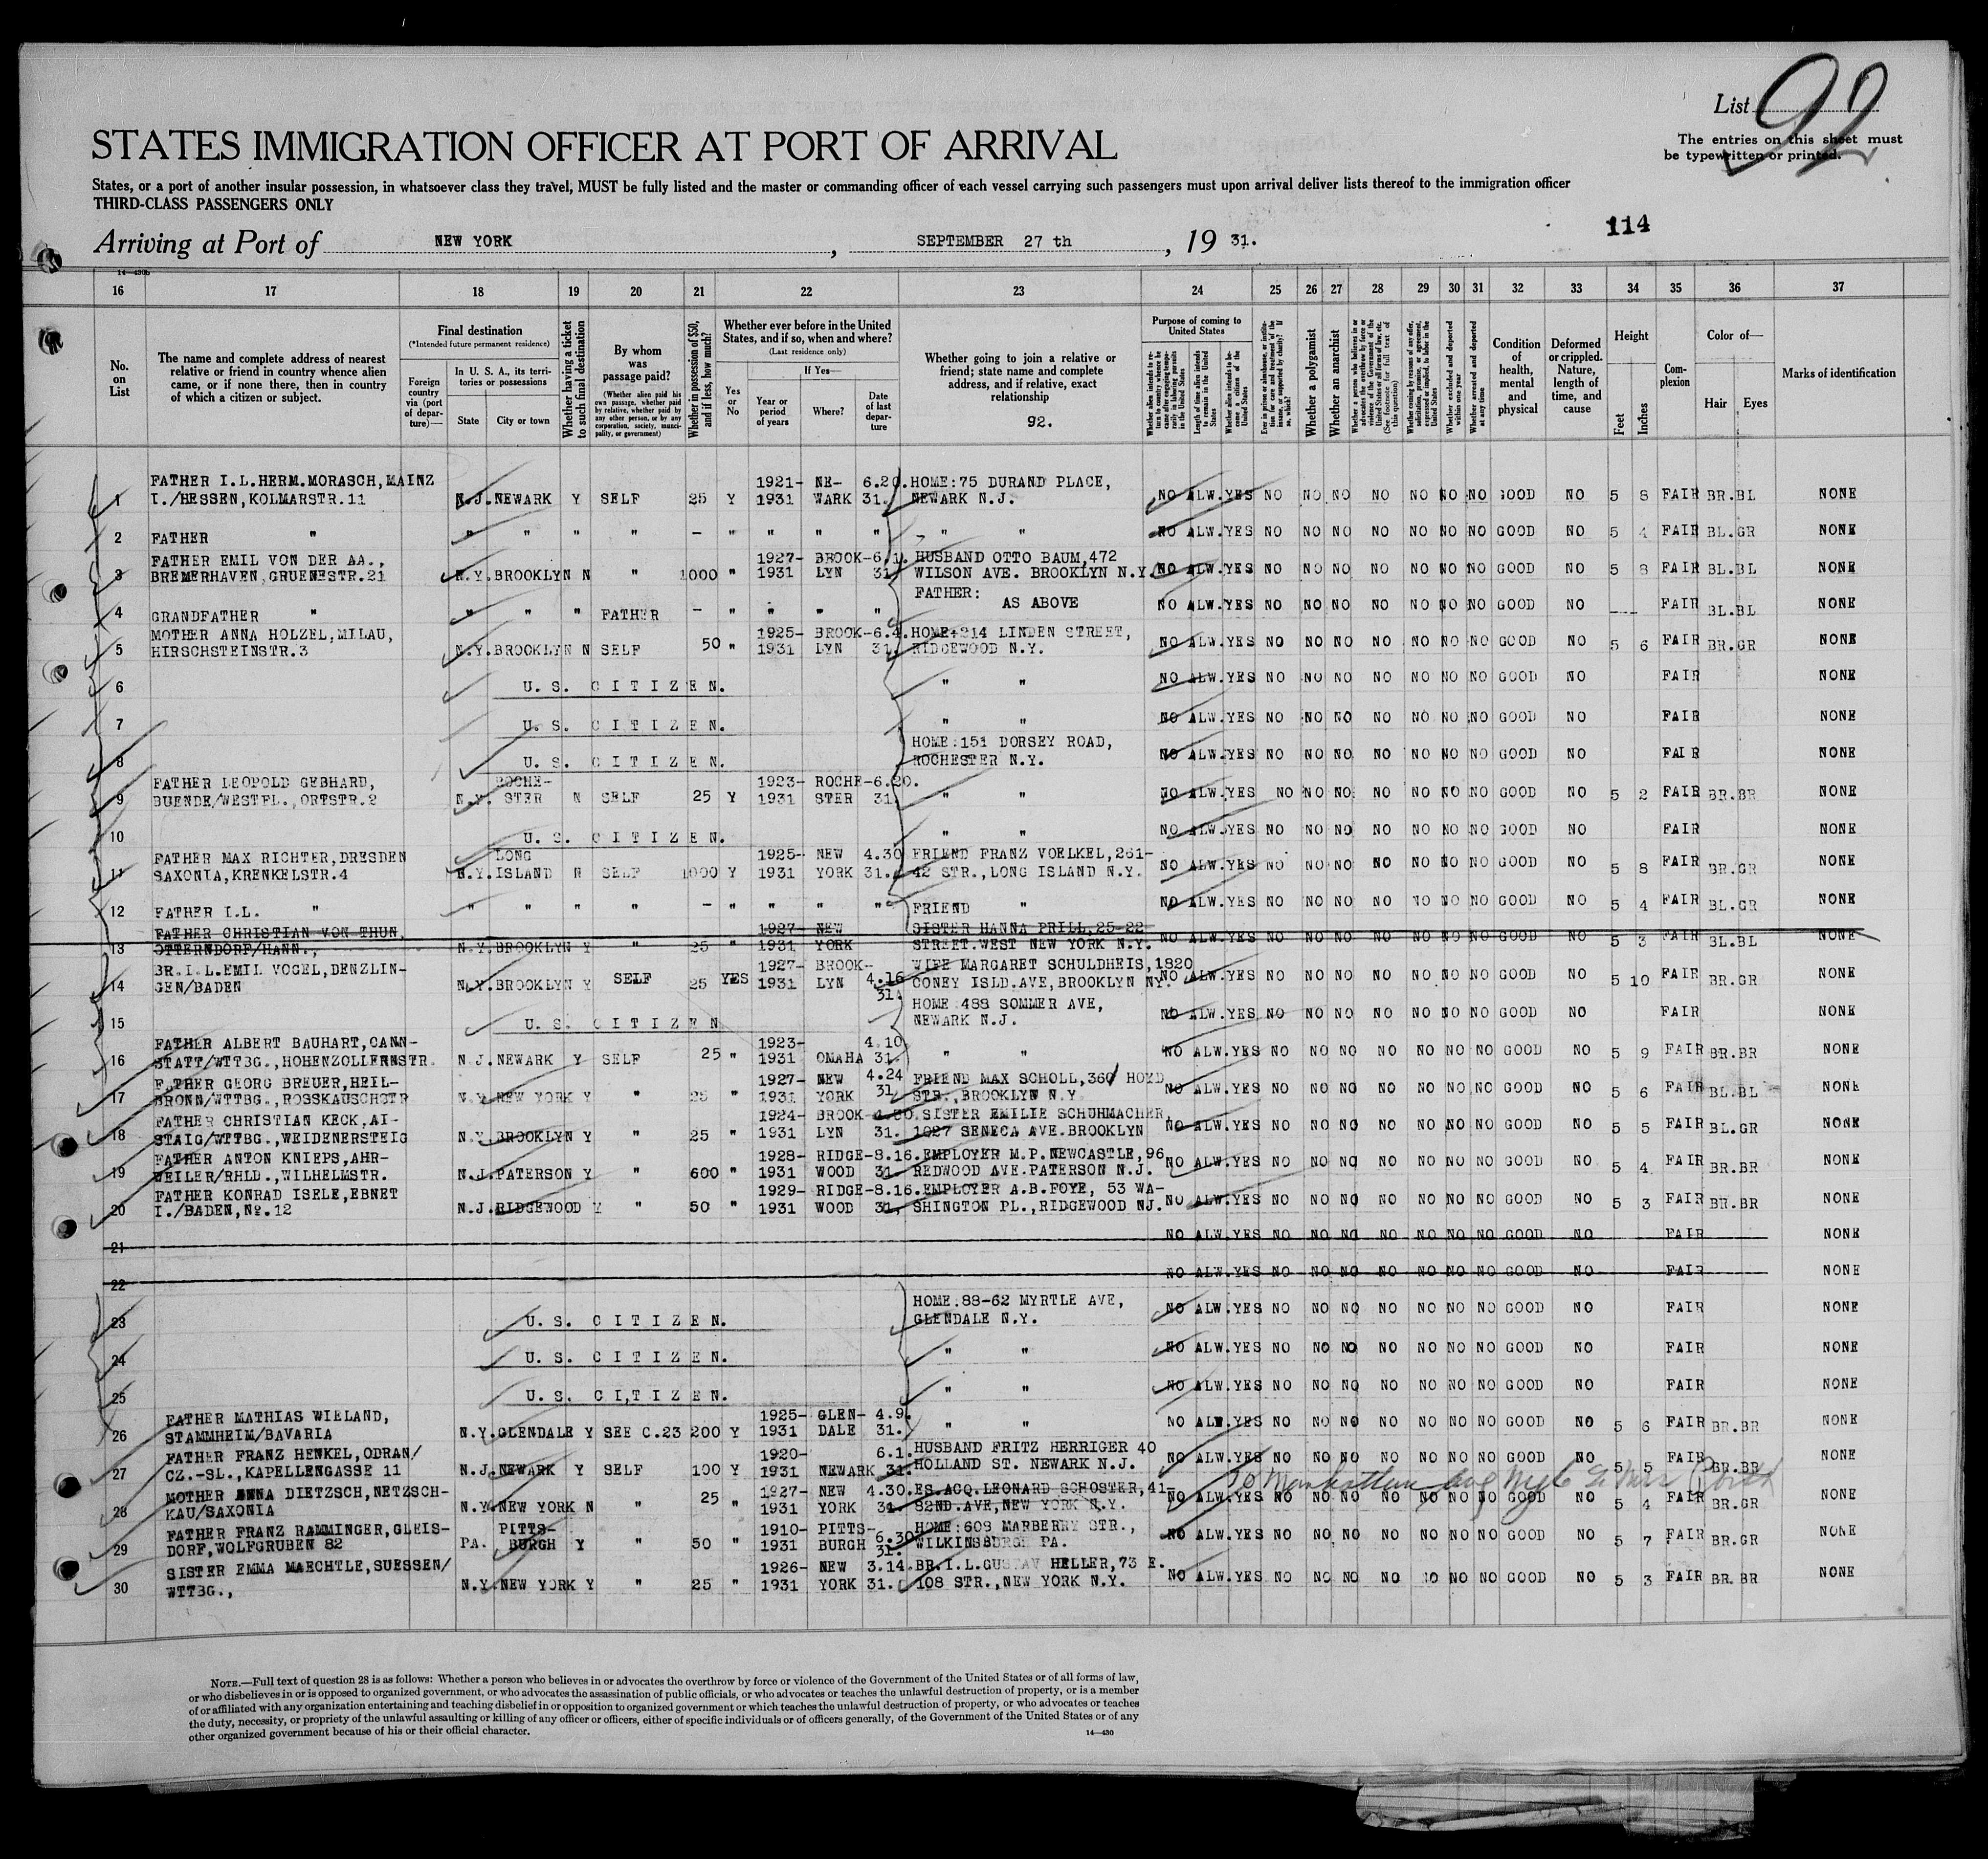 List 92
The entries on this sheet must
be typewritten or printed.
STATES IMMIGRATION OFFICER AT PORT OF ARRIVAL
States, or a port of another insular possession, in whatsoever class they travel, MUST be fully listed and the master or commanding officer of each vessel carrying such passengers must upon arrival deliver lists thereof to the immigration officer
THIRD-CLASS PASSENGERS ONLY
114
Arriving at Port of NEW YORK, SEPTEMBER 27 th, 19 31.
16 17 18 19 20 21 22 23 24 25 26 27 28 29 30 31 32 33 34 35 36 37
No. on List
The name and complete address of nearest relative or friend in country whence alien came, or if none there, then in country of which a citizen or subject.
Final destination
(*Intended future permanent residence)
Foreign country via (port of departure)—
In U. S. A., its territories or possessions
State City or town
Whether having a ticket to such final destination
By whom was passage paid?
(Whether alien paid his own passage, whether paid by relative, whether paid by any other person, or by any corporation, society, municipality, or government)
Whether in possession of $50, and if less, how much?
Whether ever before in the United States, and if so, when and where?
(Last residence only)
Yes or No
If Yes—
Year or period of years
Where?
Date of last departure
Whether going to join a relative or friend; state name and complete address, and if relative, exact relationship
92.
Purpose of coming to United States
Length of time alien intends to remain in the United States
Whether alien intends to become a citizen of the United States
Whether a polygamist
Whether an anarchist
Whether excluded and deported within one year
Whether arrested and deported at any time
Condition of health, mental and physical
Deformed or crippled. Nature, length of time, and cause
Height
Feet Inches
Complexion
Color of—
Hair Eyes
Marks of identification
FATHER I.L.HERM.MORASCH,MAINZ 1921- NE- 6.20. HOME:75 DURAND PLACE,
1 I./HESSEN,KOLMARSTR.11 N.J. NEWARK Y SELF 25 Y 1931 WARK 31. NEWARK N.J. NO ALW. YES NO NO NO NO NO NO NO GOOD NO 5 8 FAIR BR. BL NONE
2 FATHER " " " " " - " " " " " " NO ALW. YES NO NO NO NO NO NO NO GOOD NO 5 4 FAIR BL. GR NONE
FATHER EMIL VON DER AA., 1927- BROOK- 6.1. HUSBAND OTTO BAUM,472
3 BREMERHAVEN,GRUENESTR.21 N.Y. BROOKLYN N " 1000 " 1931 LYN 31 WILSON AVE. BROOKLYN N.Y. NO ALW. YES NO NO NO NO NO NO NO GOOD NO 5 8 FAIR BL. BL NONE
FATHER:
4 GRANDFATHER " " " " FATHER - " " " " AS ABOVE NO ALW. YES NO NO NO NO NO NO NO GOOD NO --- FAIR BL. BL NONE
MOTHER ANNA HOLZEL,MILAU, 1925- BROOK- 6.4. HOME:214 LINDEN STREET,
5 HIRSCHSTEINSTR.3 N.Y. BROOKLYN N SELF 50 " 1931 LYN 31 RIDGEWOOD N.Y. NO ALW. YES NO NO NO NO NO NO NO GOOD NO 5 6 FAIR BR. GR NONE
6 U. S. C I T I Z E N. " " NO ALW. YES NO NO NO NO NO NO NO GOOD NO FAIR NONE
7 U. S. C I T I Z E N. " " NO ALW. YES NO NO NO NO NO NO NO GOOD NO FAIR NONE
HOME:151 DORSEY ROAD,
8 U. S. C I T I Z E N. ROCHESTER N.Y. NO ALW. YES NO NO NO NO NO NO NO GOOD NO FAIR NONE
FATHER LEOPOLD GEBHARD, ROCHE- 1923- ROCHE- 6.20.
9 BUENDE/WESTFL.,ORTSTR.2 N.Y. STER N SELF 25 Y 1931 STER 31 " " NO ALW. YES NO NO NO NO NO NO NO GOOD NO 5 2 FAIR BR. BR NONE
10 U. S. C I T I Z E N. " " NO ALW. YES NO NO NO NO NO NO NO GOOD NO FAIR NONE
FATHER MAX RICHTER,DRESDEN LONG 1925- NEW 4.30 FRIEND FRANZ VOELKEL,261-
11 SAXONIA,KRENKELSTR.4 N.Y. ISLAND N SELF 1000 Y 1931 YORK 31. 42 STR.,LONG ISLAND N.Y. NO ALW. YES NO NO NO NO NO NO NO GOOD NO 5 8 FAIR BR. GR NONE
12 FATHER I.L. " " " " " - " " " " FRIEND " NO ALW. YES NO NO NO NO NO NO NO GOOD NO 5 4 FAIR BL. GR NONE
FATHER CHRISTIAN VON THUN, 1927- NEW SISTER HANNA PRILL,25-22
13 OTTERNDORF/HANN., N.Y. BROOKLYN Y " 25 " 1931 YORK STREET.WEST NEW YORK N.Y. NO ALW. YES NO NO NO NO NO NO NO GOOD NO 5 3 FAIR BL. BL NONE
BR.I.L.EMIL VOGEL,DENZLIN- 1927- BROOK- 4.16 WIFE MARGARET SCHULDHEIS,1820
14 GEN/BADEN N.Y. BROOKLYN Y SELF 25 YES 1931 LYN 31. CONEY ISLD.AVE,BROOKLYN NY. NO ALW. YES NO NO NO NO NO NO NO GOOD NO 5 10 FAIR BR. GR NONE
HOME 488 SOMMER AVE,
15 U. S. C I T I Z E N NEWARK N.J. NO ALW. YES NO NO NO NO NO NO NO GOOD NO FAIR NONE
FATHER ALBERT BAUHART,CANN- 1923- 4.10
16 STATT/WTTBG.,HOHENZOLLERNSTR. N.J. NEWARK Y SELF 25 " 1931 OMAHA 31. " " NO ALW. YES NO NO NO NO NO NO NO GOOD NO 5 9 FAIR BR. BR NONE
FATHER GEORG BREUER,HEIL- 1927- NEW 4.24 FRIEND MAX SCHOLL,360 HOYD
17 BRONN/WTTBG.,ROSSKAUSCHSTR N.Y. NEW YORK Y " 25 " 1931 YORK 31. STR.,BROOKLYN N.Y NO ALW. YES NO NO NO NO NO NO NO GOOD NO 5 6 FAIR BL. BL NONE
FATHER CHRISTIAN KECK,AI- 1924- BROOK- SISTER EMILIE SCHUHMACHER,
18 STAIG/WTTBG.,WEIDENERSTEIG N.Y. BROOKLYN Y " 25 " 1931 LYN 31. 1027 SENECA AVE.BROOKLYN NO ALW. YES NO NO NO NO NO NO NO GOOD NO 5 5 FAIR BL. GR NONE
FATHER ANTON KNIEPS,AHR- 1928- RIDGE- 8.16. EMPLOYER M.P.NEWCASTLE,96
19 WEILER/RHLD.,WILHELMSTR. N.J. PATERSON Y " 600 " 1931 WOOD 31. REDWOOD AVE.PATERSON N.J. NO ALW. YES NO NO NO NO NO NO NO GOOD NO 5 4 FAIR BR. BR NONE
FATHER KONRAD ISELE,EBNET 1929- RIDGE- 8.16. EMPLOYER A.B.FOYE, 53 WA-
20 I./BADEN,No.12 N.J. RIDGEWOOD Y " 50 " 1931 WOOD 31, SHINGTON PL.,RIDGEWOOD NJ. NO ALW. YES NO NO NO NO NO NO NO GOOD NO 5 3 FAIR BR. BR NONE
21 NO ALW. YES NO NO NO NO NO NO NO GOOD NO FAIR NONE
22 NO ALW. YES NO NO NO NO NO NO NO GOOD NO FAIR NONE
HOME:88-62 MYRTLE AVE,
23 U. S. C I T I Z E N. GLENDALE N.Y. NO ALW. YES NO NO NO NO NO NO NO GOOD NO FAIR NONE
24 U. S. C I T I Z E N. " " NO ALW. YES NO NO NO NO NO NO NO GOOD NO FAIR NONE
25 U. S. C I T I Z E N. " " NO ALW. YES NO NO NO NO NO NO NO GOOD NO FAIR NONE
FATHER MATHIAS WIELAND, 1925- GLEN- 4.9.
26 STAMMHEIM/BAVARIA N.Y. GLENDALE Y SEE C.23 200 Y 1931 DALE 31. " " NO ALW. YES NO NO NO NO NO NO NO GOOD NO 5 6 FAIR BR. BR NONE
FATHER FRANZ HENKEL,ODRAN/ 1920- 6.1. HUSBAND FRITZ HERRIGER 40
27 CZ.-SL.,KAPELLENGASSE 11 N.J. NEWARK Y SELF 100 Y 1931 NEWARK 31. HOLLAND ST. NEWARK N.J. NO ALW. YES NO NO NO NO NO NO NO GOOD NO 5 5 FAIR BR. BR NONE
Manhattan Ave NYC
MOTHER ANNA DIETZSCH,NETZSCH- 1927- NEW 4.30. ES.ACQ.LEONARD SCHOSTER,41-
28 KAU/SAXONIA N.Y. NEW YORK N 25 " 1931 YORK 31. 82ND.AVE,NEW YORK N.Y. NO ALW. YES NO NO NO NO NO NO NO GOOD NO 5 4 FAIR BR. GR NONE
FATHER FRANZ RAMMINGER,GLEIS- PITTS- 1910- PITTS- 6.30 HOME:608 MARBERRY STR.,
29 DORF,WOLFGRUBEN 82 PA. BURGH Y " 50 " 1931 BURGH 31. WILKINSBURGH PA. NO ALW. YES NO NO NO NO NO NO NO GOOD NO 5 7 FAIR BR. GR NONE
SISTER EMMA MAECHTLE,SUESSEN/ 1926- NEW 3.14. BR.I.L.GUSTAV HELLER,73 E.
30 WTTBG., N.Y. NEW YORK Y " 25 " 1931 YORK 31. 108 STR.,NEW YORK N.Y. NO ALW. YES NO NO NO NO NO NO NO GOOD NO 5 3 FAIR BR. BR NONE
NOTE.—Full text of question 28 is as follows: Whether a person who believes in or advocates the overthrow by force or violence of the Government of the United States or of all forms of law,
or who disbelieves in or is opposed to organized government, or who advocates the assassination of public officials, or who advocates or teaches the unlawful destruction of property, or is a member
of or affiliated with any organization entertaining and teaching disbelief in or opposition to organized government or which teaches the unlawful destruction of property, or who advocates or teaches
the duty, necessity, or propriety of the unlawful assaulting or killing of any officer or officers, either of specific individuals or of officers generally, of the Government of the United States or of any
other organized government because of his or their official character.
14—430